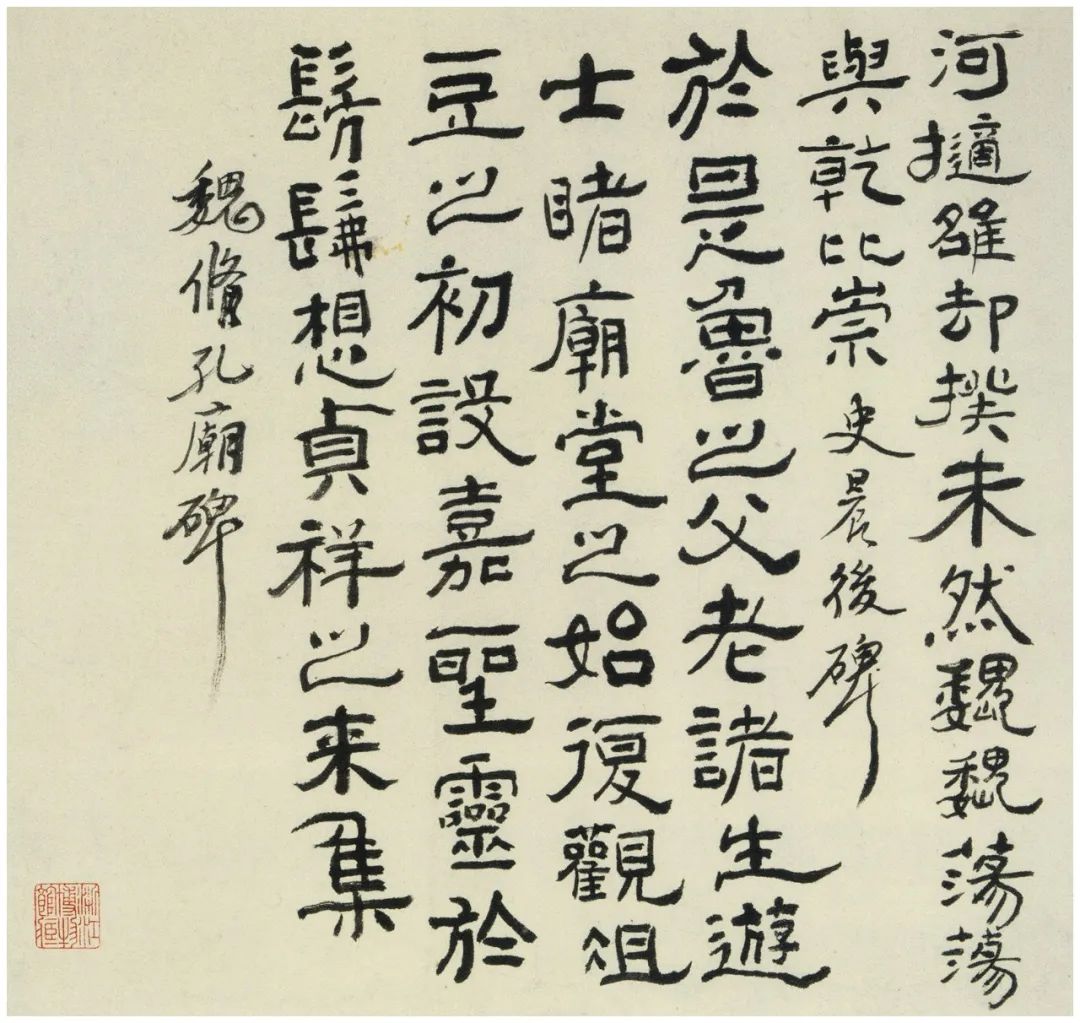 河擿雒却揆未然巍巍蕩蕩
與乾比崇 史晨後碑
於是魯之父老諸生遊
士睹廟堂之始復觀俎
豆之初設嘉聖靈於
髣髴想貞祥之来集
魏脩孔廟碑